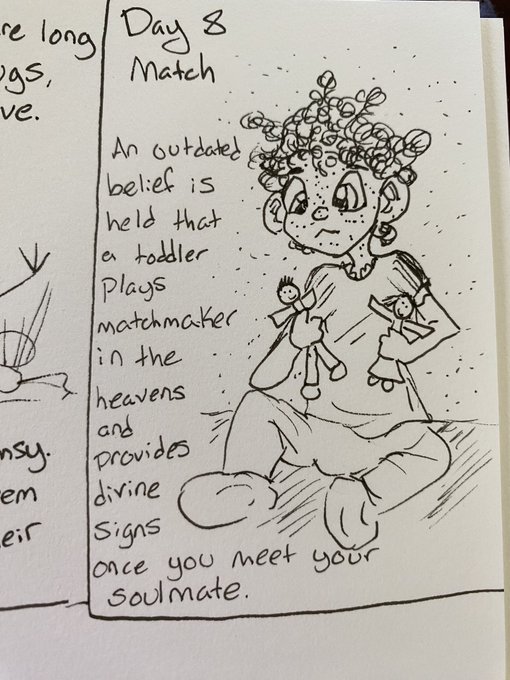 re long
ugs,
ve.
nsy.
em
eir
Day 8
Match
An outdated
belief is
held that
a toddler
plays
matchmaker
in the
heavens
and
provides
divine
signs
once you meet your
soulmate.